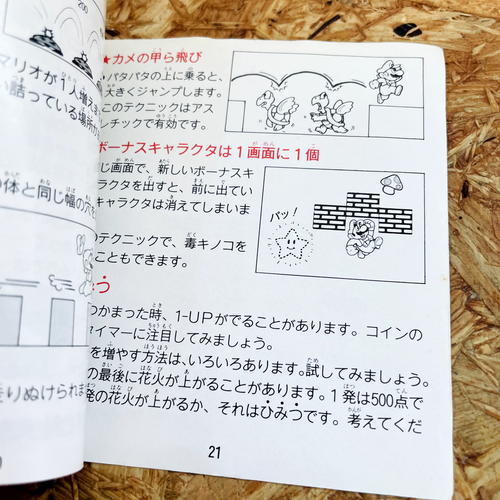 200
マリオが1人増え
詰っている場所が
体と同じ幅の穴を
りぬけられま
★カメの甲ら飛び
パタパタの上に乗ると、
大きくジャンプします。
このテクニックはアス
レチックで有効です。
ボーナスキャラクタは1画面に1個
じ画面で、新しいボーナスキ
ャラクタを出すと、前に出てい
キャラクタは消えてしまいま
のテクニックで、毒キノコを
こともできます。
バッ!
う
つかまった時、1-UPがでることがあります。コインの
タイマーに注目してみましょう。
を増やす方法は、いろいろあります。試してみましょう。
の最後に花火が上がることがあります。1発は500点で
発の花火が上がるか、それはひみつです。考えてくだ
21